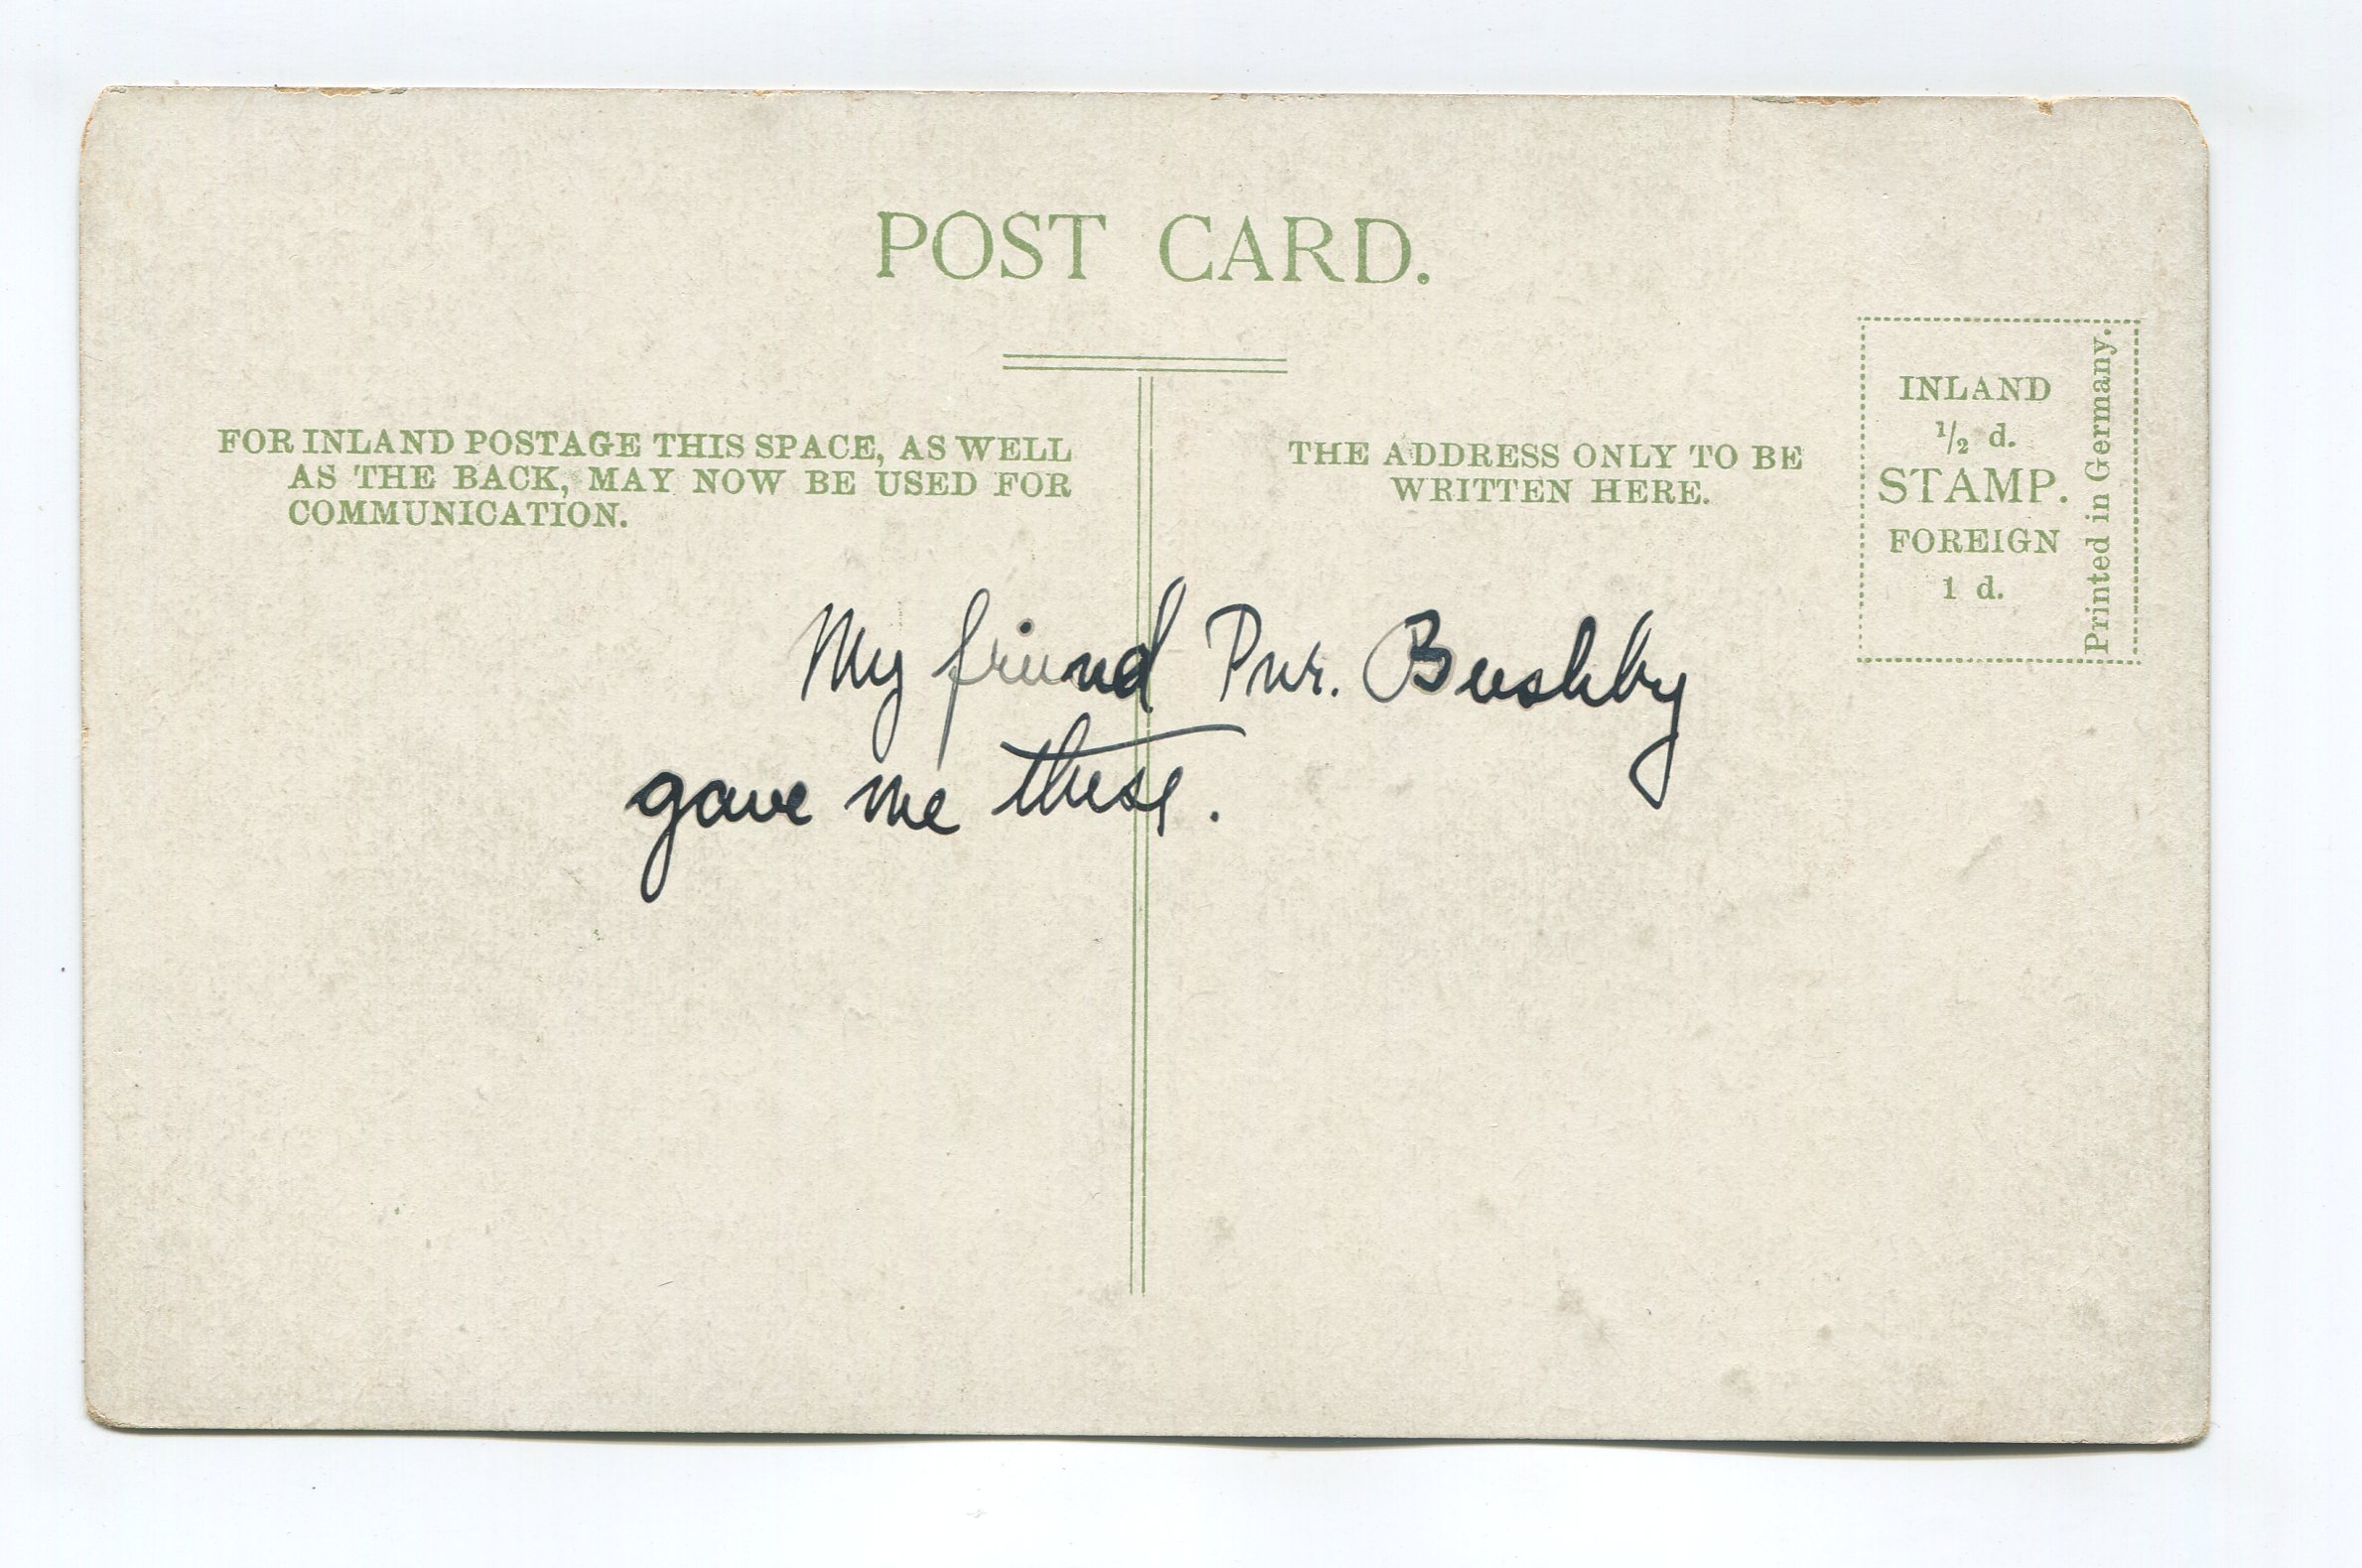 POST CARD.
FOR INLAND POSTAGE THIS SPACE, AS WELL
AS THE BACK, MAY NOW BE USED FOR
COMMUNICATION.
THE ADDRESS ONLY TO BE
WRITTEN HERE.
INLAND
1/2 d.
STAMP.
FOREIGN
1 d.
Printed in Germany.
My friend Pnr. Bushby
gave me these.